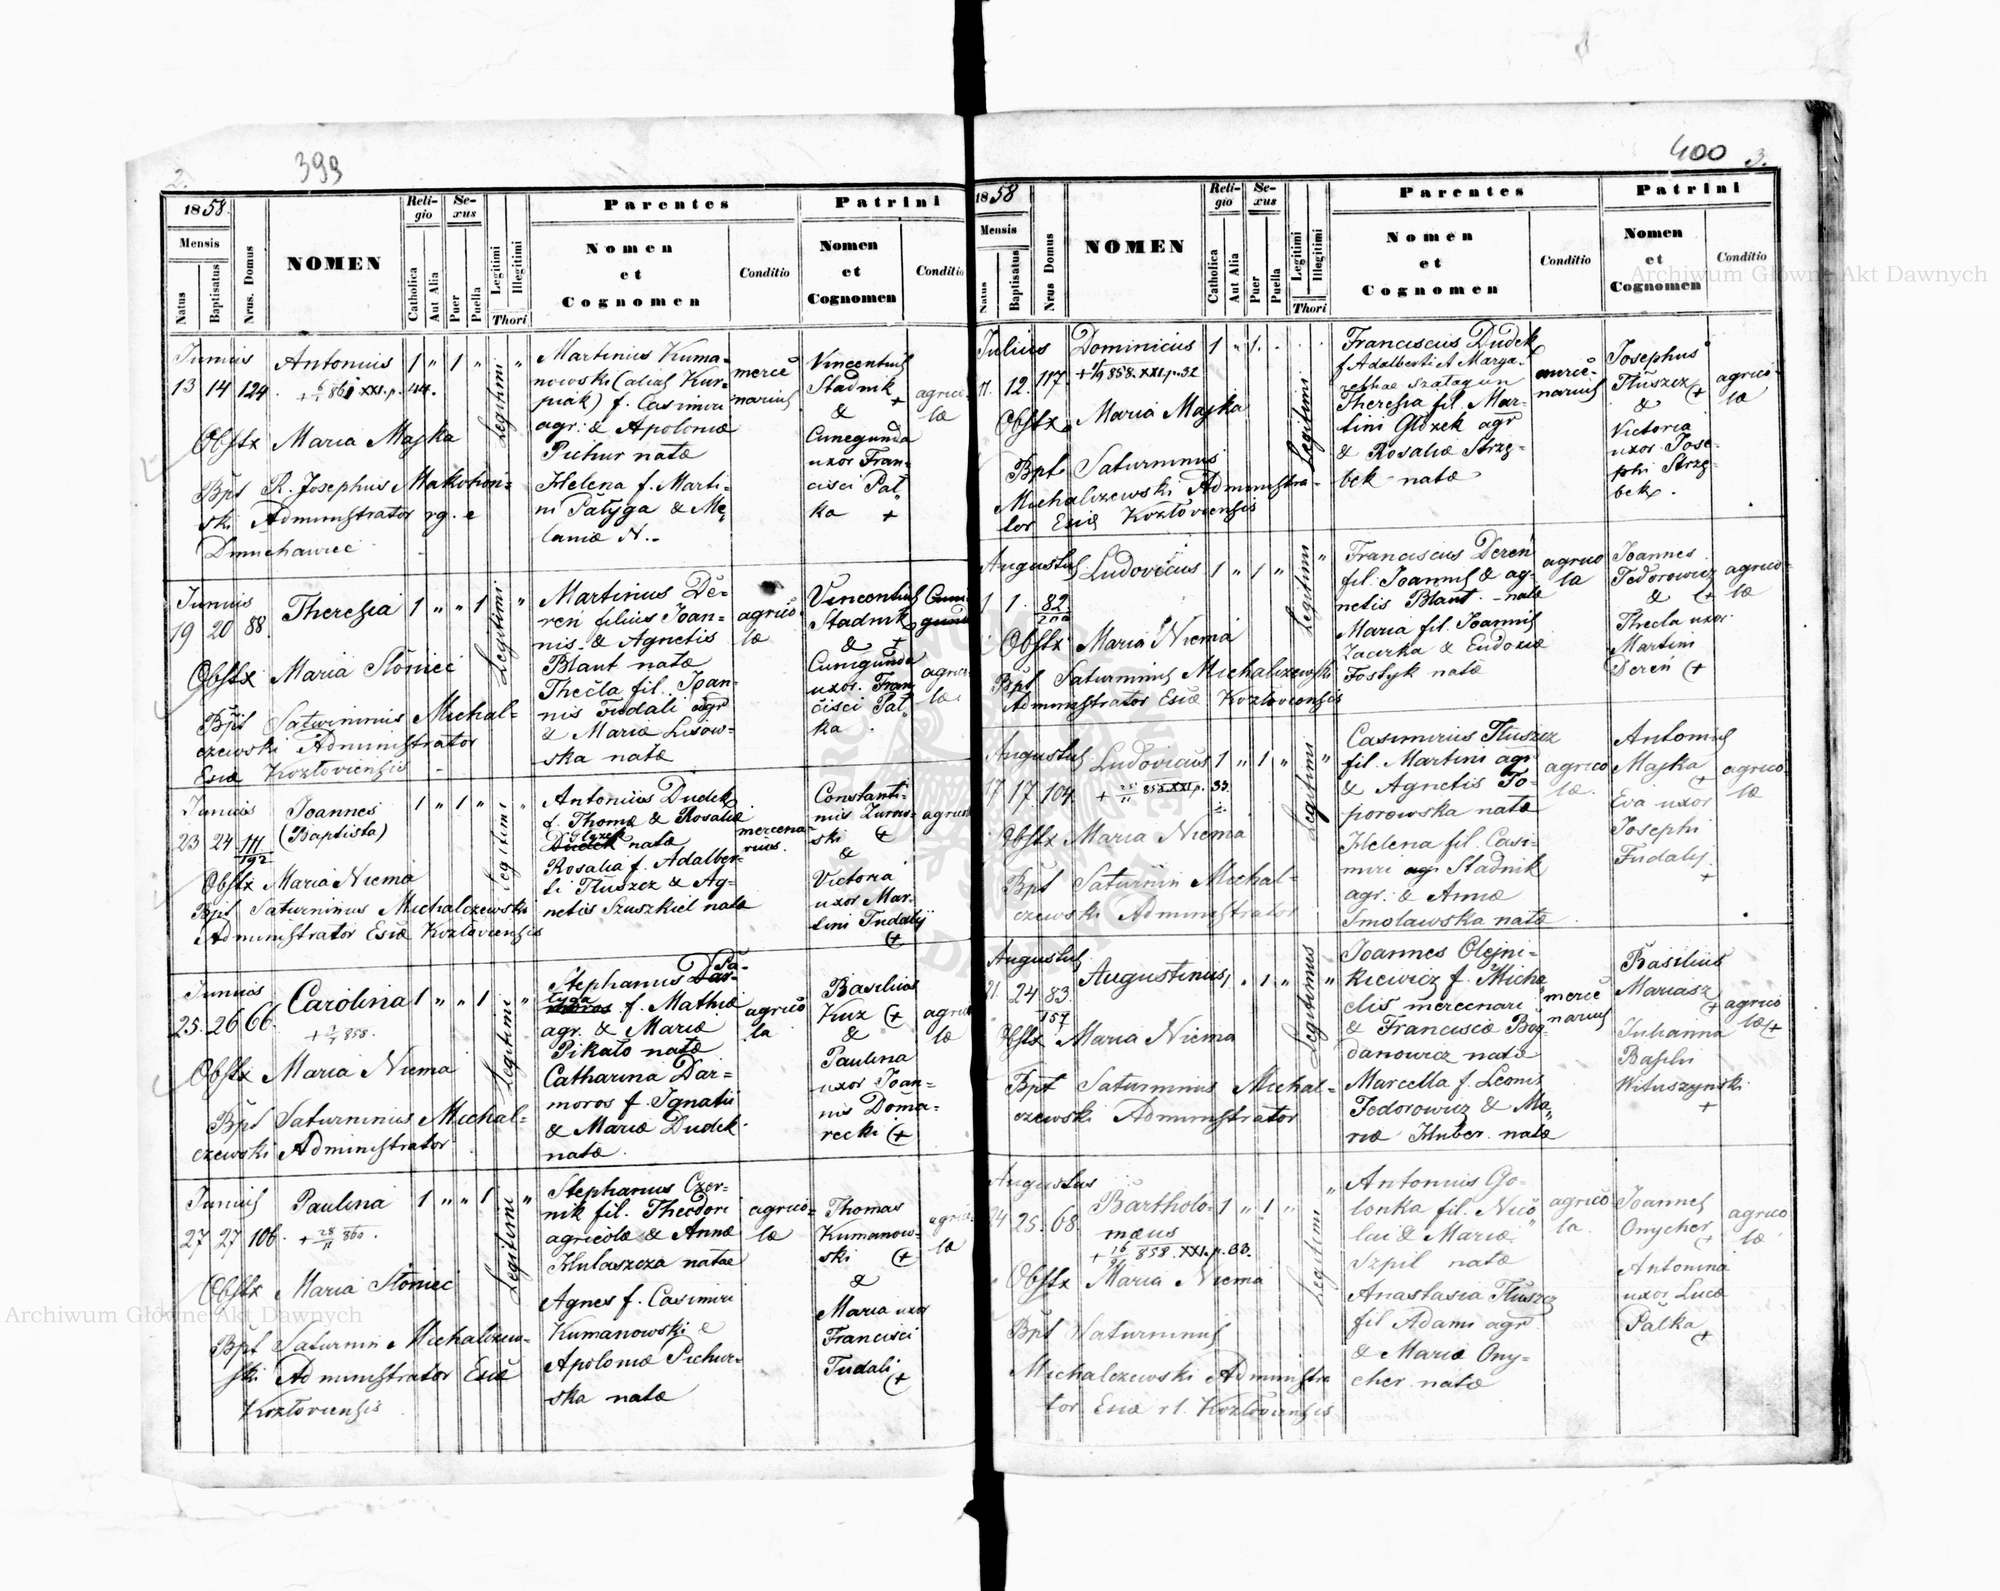 2.
399
1858.
Mensis
Natus
Baptisatus
Nrus. Domus
NOMEN
Religio
Catholica
Aut Alia
Sexus
Puer
Puella
Legitimi
Illegitimi
Thori
Parentes
Nomen
et
Cognomen
Conditio
Patrini
Nomen
et
Cognomen
Conditio
Junius
13 14 124
Antonius 1 " 1 " "
Legitimi
Obstx Maria Majka
Bpt R. Josephus Makohon=
ski Administrator rg. e
Dmuchawiec
Martinus Kuma=
nowski (alias Kur=
piak) f. Casimiri
agr: & Apoloniæ
Pichur natæ
Helena f. Marti=
ni Pałyga & Me=
laniæ N.-
merce
narius
Vincentius
Stadnik
+
&
Cunegunda
uxor Fran=
cisci Pał
ka +
agrico
læ
Junius
19 20 88
Theresia 1 " " 1 "
Legitimi
Obstx Maria Słoniec
Bpt Saturninus Michal=
czewski Administrator
Esiæ Kozłoviensis
Martinus De=
ren filius Joan=
nis & Agnetis
Blaut natæ
Thecla fil. Joan=
nis Fudali agr
& Mariæ Lisow=
ska natæ
agrico
læ
Vincentius
Stadnik
+
&
Cunigunda
uxor Fran
cisci Pał
ka .
agrico
læ
Junius
23 24 111
192
Joannes
(Baptista)
1 " 1 " "
Legitimi
Obstx Maria Niema
Bpt Saturninus Michalczewski
Administrator Esiæ Kozloviensis
Antonius Dudek
f. Thomæ & Rosaliæ
Glozek
Dudek natæ
Rosalia f. Adalber=
ti Tłuszcz & Ag=
netis Szuszkiel natæ
mercena
rius.
Constanti=
nus Zurow=
ski (+
&
Victoria
uxor Mar=
tini Fudalij
(+
agrico
Junius
25. 26 66.
Carolina 1 " " 1 "
+ 858.
Legitimi
Obstx Maria Niema
Bpt Saturninus Michal=
czewski Administrator
Stephanus
f. Mathiæ
agr. & Mariæ
Pikało natæ
Catharina Dar=
moros f. Ignatii
& Mariæ Dudek
natæ.
agrico
la
Basilius
Kuz (+
&
Paulina
uxor Joan=
nis Doma=
recki (+
agrico
læ
Junius
27 27 106.
Paulina 1 " " 1 "
+ 28/11 860.
Legitimi
Obstx Maria Słoniec
Bpt Saturnin Michalczew=
ski Administrator Esiæ
Kozłoviensis
Stephanus Czer=
nik fil. Theodori
agricolæ & Annæ
Hulaszcza natæ
Agnes f. Casimiri
Kumanowski &
Apoloniæ Pichur=
ska natæ
agrico=
læ
Thomas
Kumanow=
ski (+
&
Maria uxor
Francisci
Fudali
(+
agrico
læ
400 3.
1858
Mensis
Natus
Baptisatus
Nrus Domus
NOMEN
Religio
Catholica
Aut Alia
Sexus
Puer
Puella
Legitimi
Illegitimi
Thori
Parentes
Nomen
et
Cognomen
Conditio
Patrini
Nomen
et
Cognomen
Conditio
Julius
11. 12. 117.
Dominicus 1 " 1. . .
858. XXI. p. 32
Legitimi
Obstx Maria Majka
Bpt Saturninus
Michalczewski Administra=
tor Esiæ Kozłoviensis
Franciscus Dudek
f Adalberti & Marga=
rethae Szatagun
Theresia fil. Mar=
tini Glozek agr
& Rosaliæ Strzę=
bek natæ
merce=
narius
Josephus
Tłuszcz (+
&
Victoria
uxor Jose=
phi Strzę=
bek.
agrico=
læ
Augustus
1 1. 82
Ludovicus 1 " 1 " "
Legitimi
Obstx Maria Niema
Bpt Saturninus Michalczewski
Administrator Esiæ Kozloviensis
Franciscus Deren
fil. Joannis & ag=
netis Blaut. - natæ
Maria fil. Joannis
Zacerka & Eudoxiæ
Fostyk natæ
agrico
la
Joannes
Fedorowicz
& (+
Thecla uxor
Martini
Dereń (+
agrico=
læ
Augustus
17 17 104
Ludovicus 1 " 1 " "
+ 25/11 858. XXI p. 33.
Legitimi
Obstx Maria Niema
Bpt Saturnin Michal=
czewski Administrator
Casimirus Tłuszcz
fil. Martini agr
& Agnetis To=
porowska natæ
Helena fil. Casi=
miri agr Stadnik
agr. & Annæ
Smolawska natæ
agrico
læ.
Antonius
Majka
+
Eva uxor
Josephi
Fudalij.
+
agrico=
læ
Augustus
21. 24 83.
157
Augustinus 1 " 1 " "
Legitimus
Obstx Maria Niema
Bpt Saturninus Michal=
czewski Administrator
Joannes Olejni=
kiewicz f. Micha
elis mercenari
& Franciscæ Bog=
danowicz natæ
Marcella f. Leonis
Fedorowicz & Ma=
riæ Huber natæ
merce
narius
Basilius
Mariasz
+
Julianna
Basilii
Wituszynski
+
agrico
læ (+
Augustus
24 25. 68.
Bartholo=
mæus
1 " 1 " "
+ 16/9 858. XXI. p. 33.
Legitimi
Obstx Maria Niema
Bpt Saturninus
Michalczewski Administra
tor Esiæ r l. Kozłoviensis
Antonius Go=
lonka fil. Nico
lai & Mariæ
Szpil natæ
Anastasia Tłuszcz
fil Adami agr
& Mariæ Ony=
cher natæ
agrico
la.
Joannes
Onycher
+
Antonina
uxor Lucæ
Pałka
+
agrico
læ
Archiwum Główne Akt Dawnych
Archiwum Główne Akt Dawnych